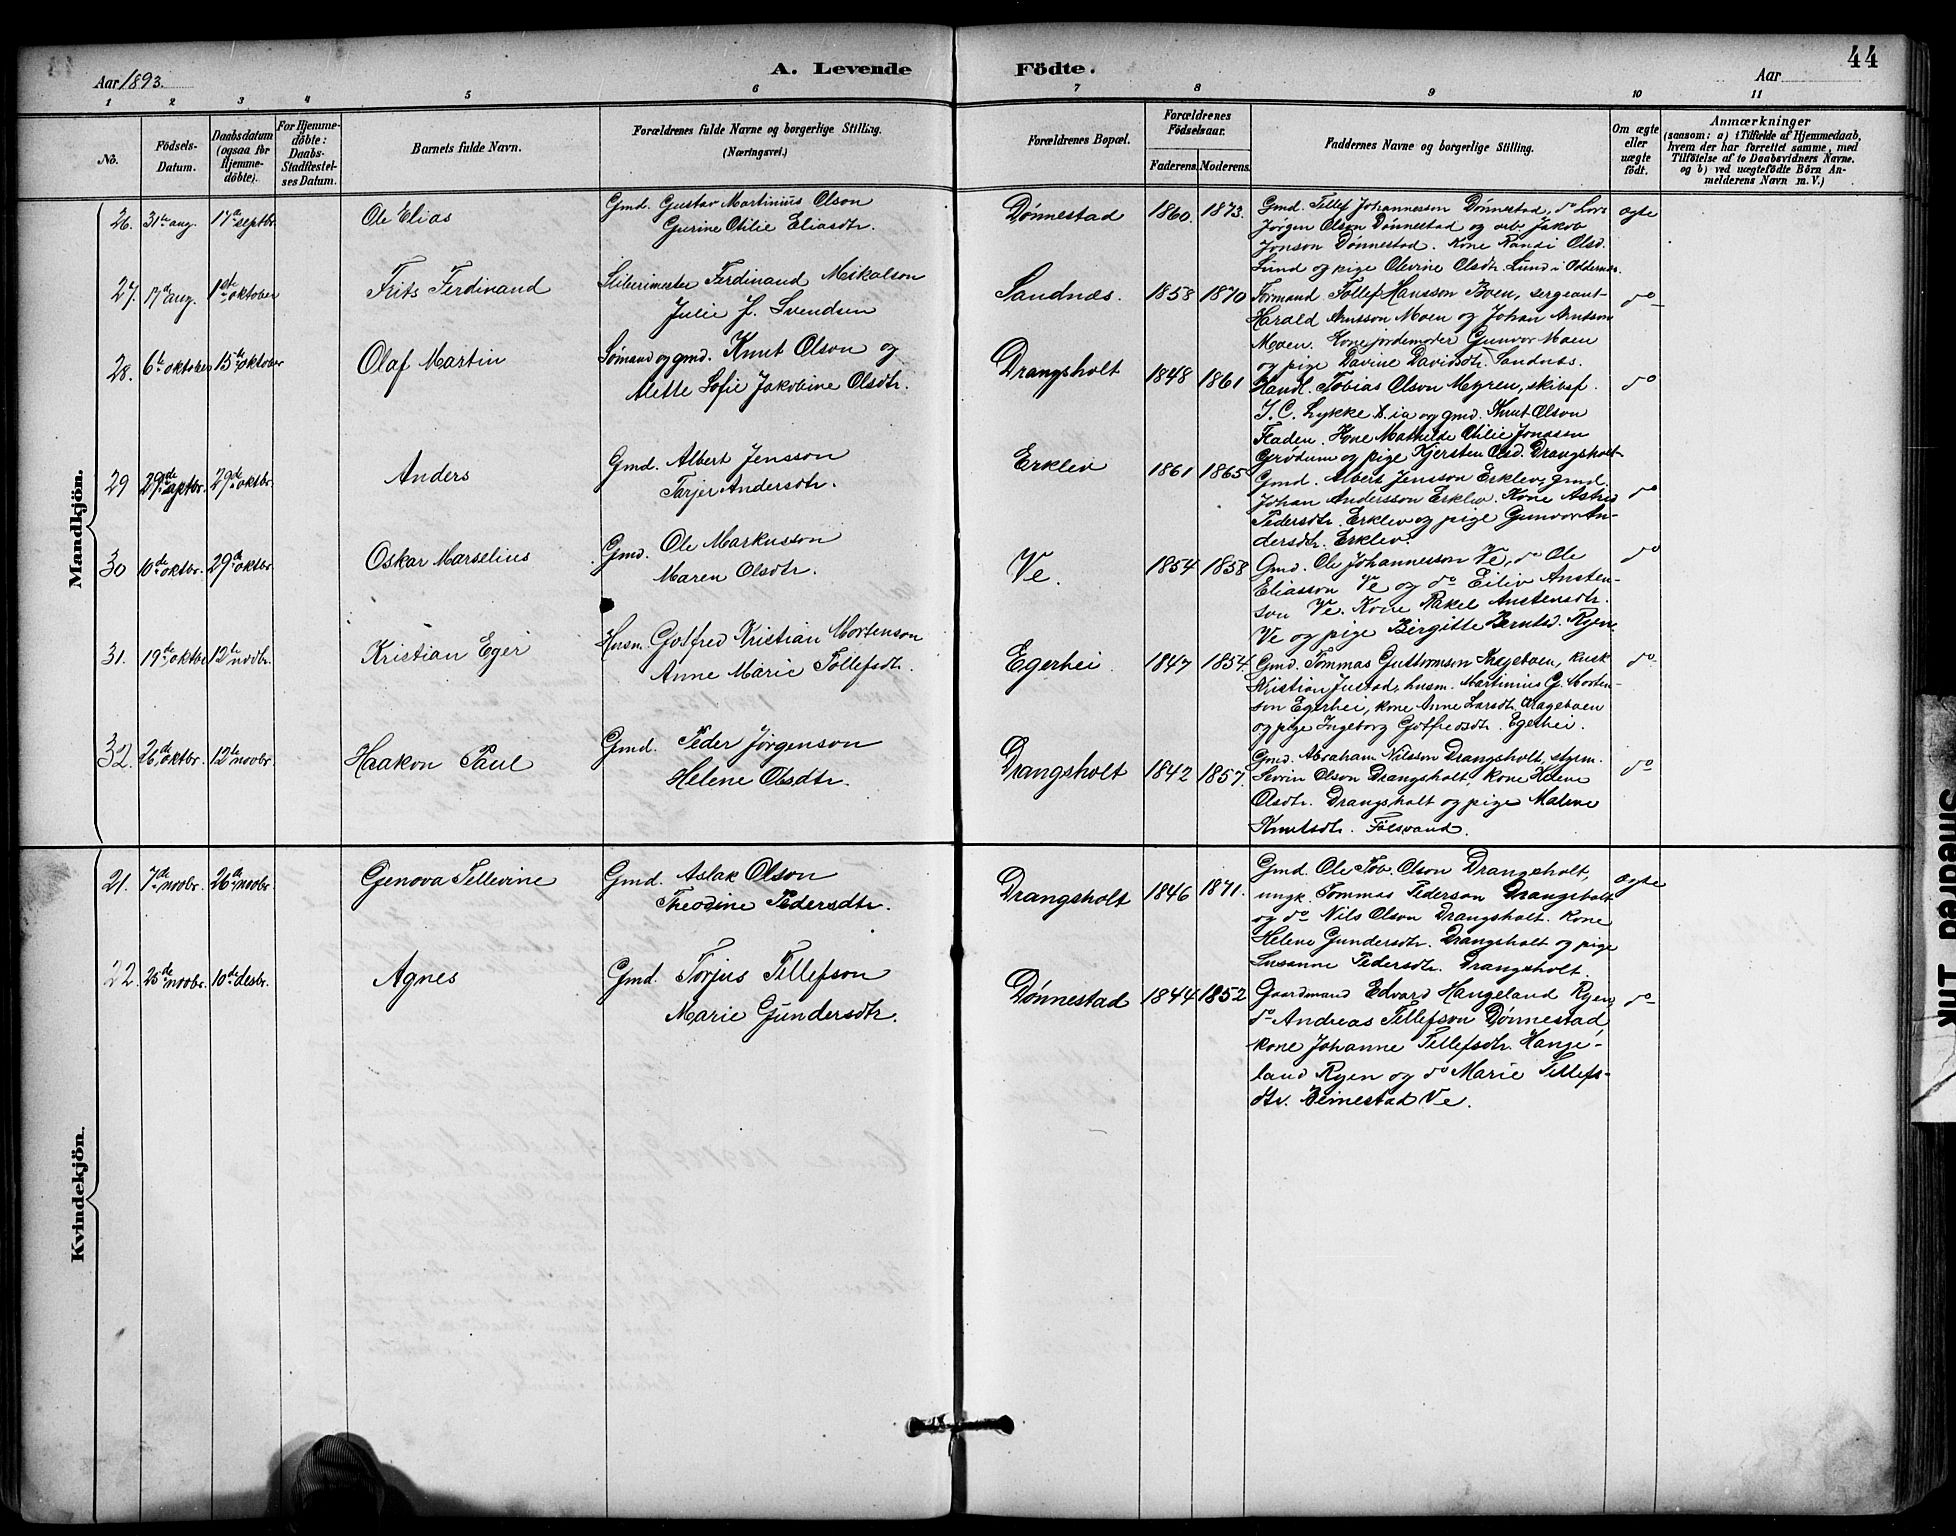 44
Aar 1893.
A. Levende Födte.
Aar
1 2 3 4 5 6 7 8 9 10 11
No.
Födsels-Datum.
Daabsdatum (ogsaa for Hjemme-döbte).
For Hjemme-döbte: Daabs-Stadfæstel-ses Datum.
Barnets fulde Navn.
Forældrenes fulde Navne og borgerlige Stilling.
(Næringsvei.)
Forældrenes Bopæl.
Forældrenes Födselsaar.
Faderens. Moderens.
Faddernes Navne og borgerlige Stilling.
Om ægte eller uægte födt.
Anmærkninger
(saasom: a) i Tilfælde af Hjemmedaab, hvem der har forrettet samme, med Tilföielse af to Daabsvidners Navne. og b) ved uægtefödte Börn An-melderens Navn m. V.)
Mandkjön.
26. 31te aug. 17de septbr. Ole Elias
Gmd. Gustav Martinius Olson
Gurine Otilie Eliasdtr.
Dønnestad 1860. 1873.
Gmd. Tellef Johannesson Dønnestad, do Lars
Jørgen Olson Dønnestad og arb. Jakob
Jonson Dønnestad. Kone Randi Olsd.
Lund og pige Olevine Olsdtr. Lund i Oddernes.
ægte
27. 17de aug. 1ste oktober Frits Ferdinand
Sliberimester Ferdinand Mikalson
Julie J. Svendsen
Sandnæs. 1858 1870
Formand Tollef Hansson Boen, sergeant
Harald Arntsson Moen og Johan Arntsson
Moen. Kone jordemoder Gunvor Moen
og pige Davine Davidsdtr. Sandnæs.
do
28. 6te oktober 15de oktober Olaf Martin
Sømand og gmd. Knut Olson og
Mette Sofie Jakobine Olsdtr.
Drangsholt 1848 1861
Handl. Tobias Olson Myren, skibsf.
J. C. Lykke og gmd. Knut Olson
Kone Mathilde Otilie Jonassen
Grødum og pige Kjersten Olsd. Drangsholt
do
29 29de septbr. 29de oktbr. Anders
Gmd. Albert Jensson
Tarjer Andersdtr.
Erklev 1861 1865
Gmd. Albert Jensson Erklev, gmd.
Johan Andersson Erklev. Kone Astrid
Pedersdtr. Erklev og pige Gunvor An-
dersdtr. Erklev.
do
30 10de oktbr. 29de oktbr. Oskar Marselius
Gmd. Ole Markusson
Maren Olsdtr.
Ve. 1854 1858
Gmd. Ole Johannesson Ve, do Ole
Eliasson Ve og do Eiliv Ansten-
son Ve. Kone Rakel Anstensdtr.
Ve og pige Birgitte Berntsd. Ryen
do
31. 19de oktbr. 12te novbr. Kristian Eger
Husm. Gotfred Kristian Mortenson
Anne Marie Tollefsdtr.
Egerhei. 1847 1854
Gmd. Tommas Guttormson Ingeboen, kusk
Kristian Justad, husm. Martinius G. Morten-
son Egerhei, kone Anne Larsdtr.
og pige Ingeborg Gotfredsdtr. Egerhei.
do
32. 26de oktbr. 12te novbr. Haakon Paul
Gmd. Peder Jørgenson
Helene Olsdtr.
Drangsholt 1842 1857.
Gmd. Abraham Nilsson Drangsholt, styrm.
Severin Olson Drangsholt, kone Helene
Olsdtr. Drangsholt og pige Malene
Knutsdtr. Følsvand.
do
Kvindekjön.
21. 7de novbr. 26de novbr. Genova Tellevine
Gmd. Aslak Olson
Theodine Pedersdtr.
Drangsholt 1846 1871.
Gmd. Ole Tob. Olson Drangsholt,
ungk. Tommas Pederson Drangsholt
og do Nils Olson Drangsholt. Kone
Helene Gundersdtr. Drangsholt og pige
Susanne Pedersdtr. Drangsholt.
ægte
22. 25de novbr. 10de desbr. Agnes
Gmd. Torjus Tellefson
Marie Gundersdtr.
Dønnestad 1844 1852
Gaardmand Edvard Hangeland Ryen,
do Andreas Tellefson Dønnestad,
kone Johanne Tellefsdtr. Hange-
land Ryen og do Marie Tellefs-
dtr. Beinestad Ve.
do